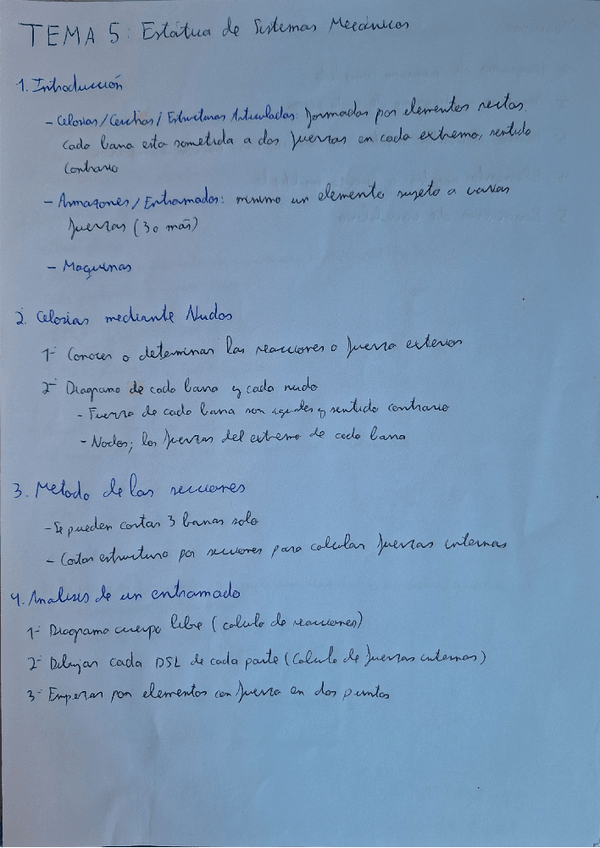 TEMA 5: Estática de Sistemas Mecánicos
1. Introducción
- Celosias/Cerchas/Estructuras Articuladas: formadas por elementos rectos.
cada barra esta sometida a dos fuerzas en cada extremo, sentido
contrario
- Armazones/Entramados: minimo un elemento sujeto a varias
fuerzas (3 o más)
- Maquinas
2. Celosias mediante Nudos
1- Conocer o determinar las reacciones o fuerza exterior
2- Diagrama de cada barra y cada nudo
- Fuerza de cada barra son iguales y sentido contrario
- Nodos; las fuerzas del extremo de cada barra
3. Metodo de las secciones
- Se pueden cortar 3 barras solo
- Cortar estructura por secciones para calcular fuerzas internas
4. Analisis de un entramado
1- Diagrama cuerpo libre (calculo de reacciones)
2- Dibujar cada DSL de cada parte (Calculo de fuerzas internas)
3- Empezar por elementos con fuerza en dos puntos